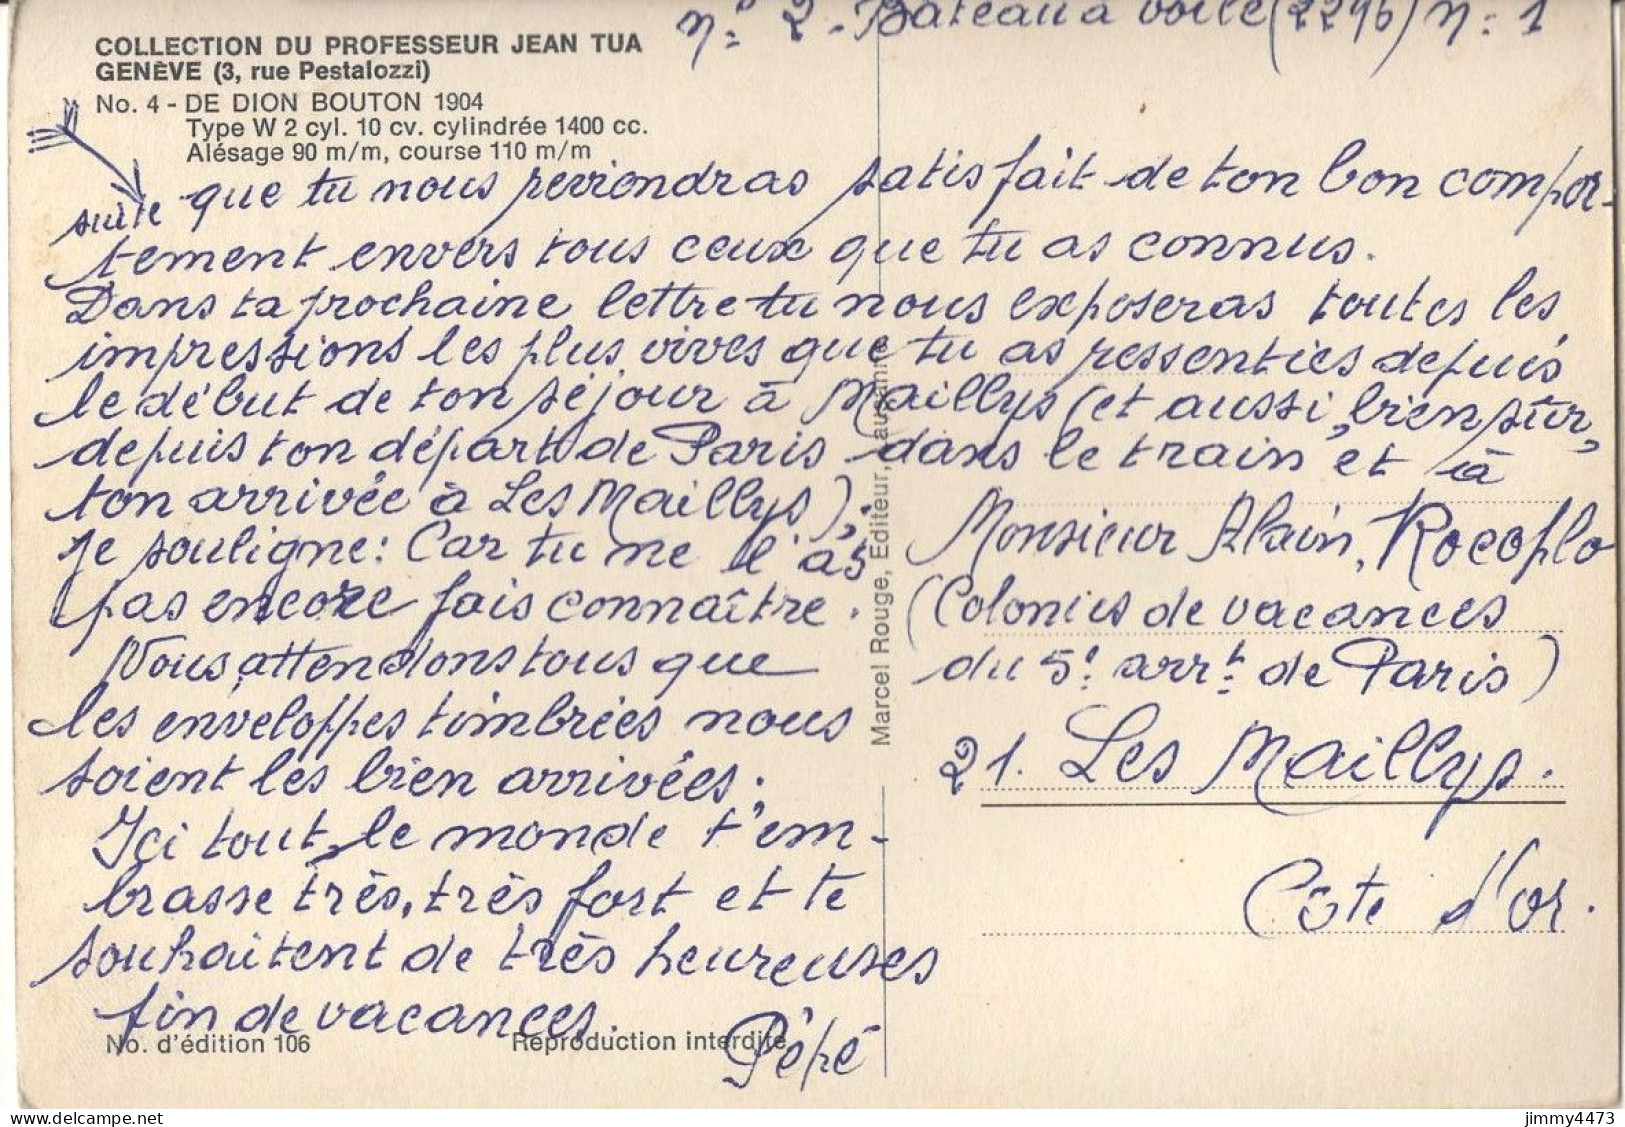 n.º 2 - Bateau à voile (2296) n: 1
COLLECTION DU PROFESSEUR JEAN TUA
GENÈVE (3, rue Pestalozzi)
No. 4 - DE DION BOUTON 1904
Type W 2 cyl. 10 cv. cylindrée 1400 cc.
Alésage 90 m/m, course 110 m/m
suite que tu nous reviendras satisfait de ton bon compor-
tement envers tous ceux que tu as connus.
Dans ta prochaine lettre tu nous exposeras toutes les
impressions les plus vives que tu as ressenties depuis
le début de ton séjour à Maillys (et aussi, bien sûr,
depuis ton départ de Paris dans le train et à
ton arrivée à Les Maillys);
je souligne: Car tu me l'as
pas encore fais connaître.
Nous attendons tous que
les enveloppes timbrées nous
soient les bien arrivées;
Içi tout le monde t'em-
brasse très, très fort et te
souhaitent de très heureuses
fin de vacances.
Pépé
Marcel Rouge, Editeur, Lausanne
Monsieur Alain, Rocoplo
(Colonies de vacances
du 5e arrt de Paris)
21. Les Maillys.
Côte d'or.
No. d'édition 106
Reproduction interdite
jimmy4473